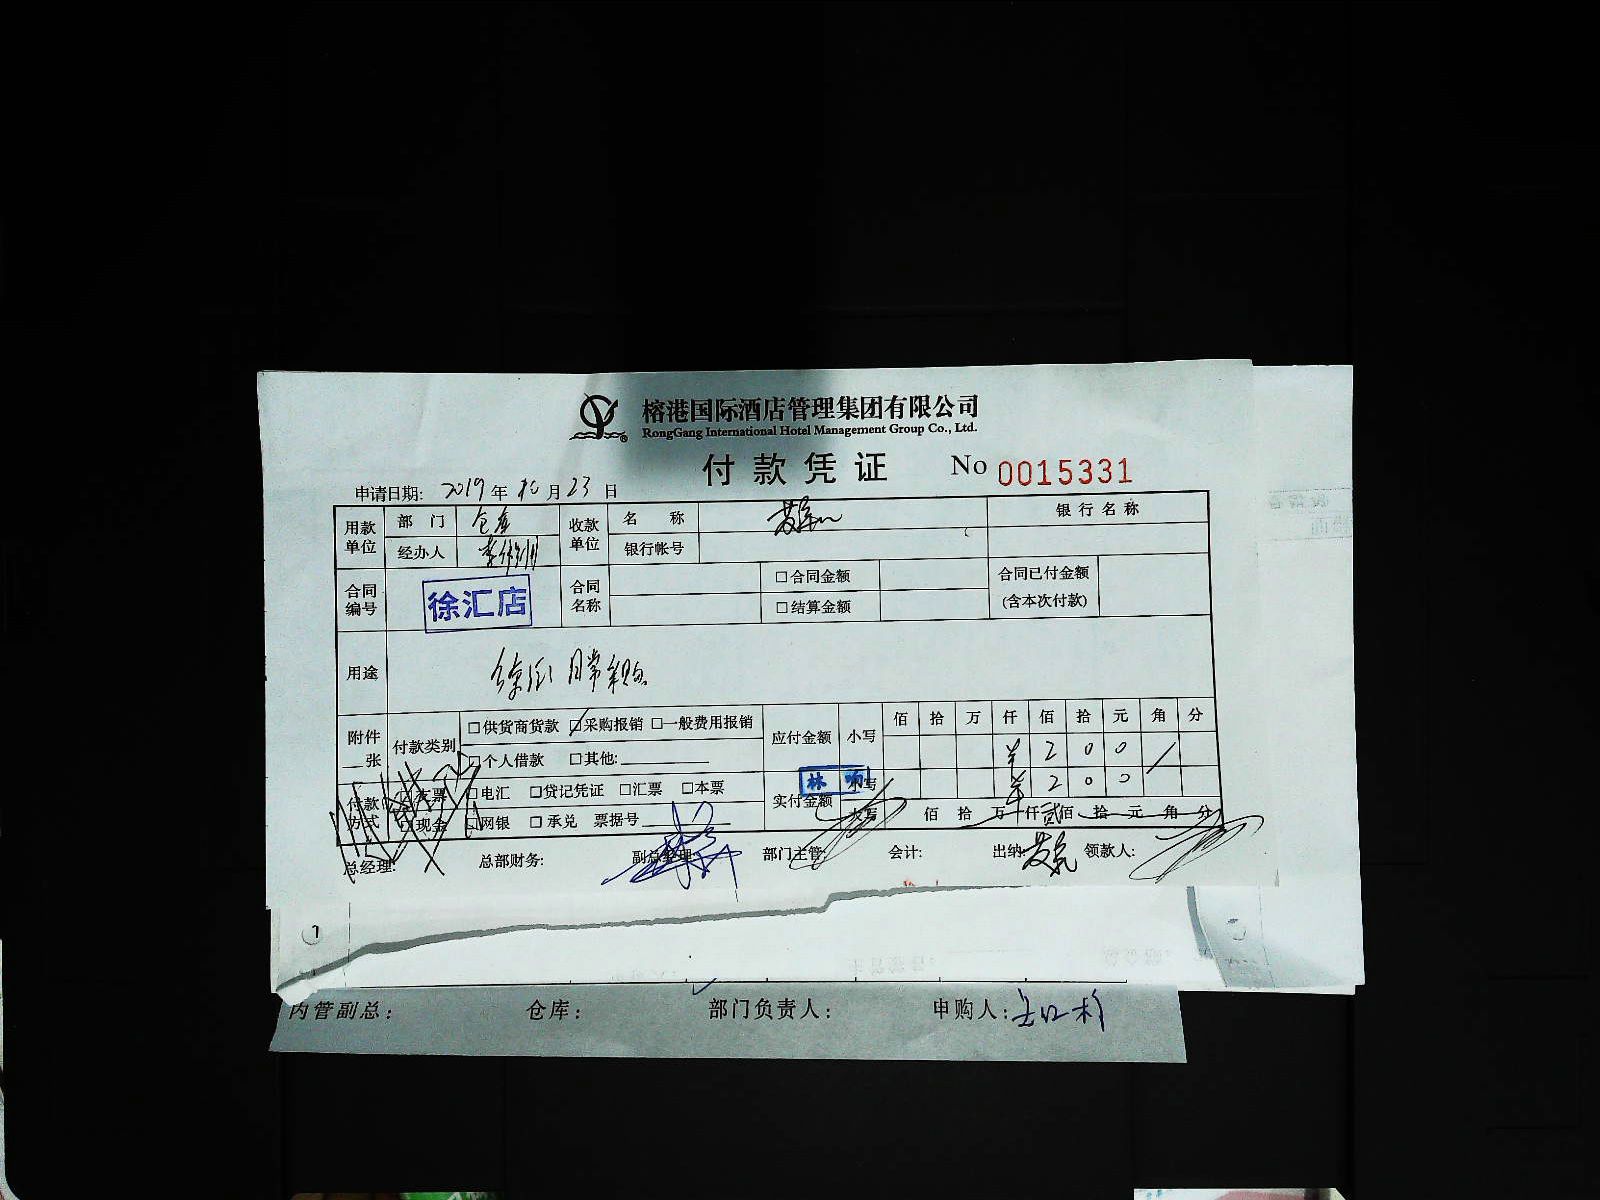 榕港国际酒店管理集团有限公司
RongGang International Hotel Management Group Co., Ltd.
付款凭证 No 0015331
申请日期: 2019 年 10 月 23 日
用款单位 部门 仓库 收款单位 名称 银行名称
经办人 银行帐号
合同编号 徐汇店 合同名称 □合同金额 合同已付金额
□结算金额 (含本次付款)
用途 日常采购
附件 张 付款类别 □供货商货款 ☑采购报销 □一般费用报销 应付金额 小写 佰 拾 万 仟 佰 拾 元 角 分
□个人借款 □其他: ¥ 2 0 0 /
付款方式 □支票 □电汇 □贷记凭证 □汇票 □本票 实付金额 林 小写 ¥ 2 0 0
□现金 □网银 □承兑 票据号 大写 佰 拾 万 仟 贰 佰 拾 元 角 分
总经理: 总部财务: 副总经理: 部门主管: 会计: 出纳: 领款人:
内管副总: 仓库: 部门负责人: 申购人: